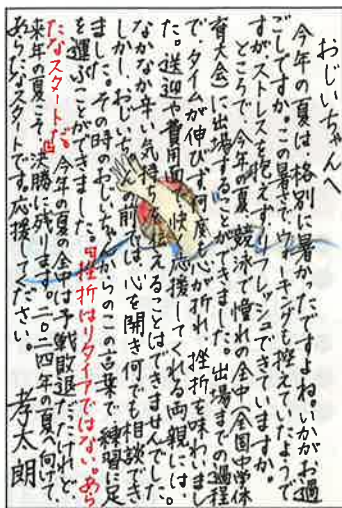 おじいちゃんへ
今年の夏は、格別に暑かったですよね。いかがお過
ごしですか。この暑さでウォーキングも控えていたようで
すが、ストレスを抱えずリフレッシュできていますか。
ところで、今年の夏、競泳で憧れの全中(全国中学体
育大会)に出場することができました。出場までの過程
で、タイムが伸びず何度も心が折れ、挫折を味わいまし
た。送迎や費用面で快く応援してくれる両親には、
なかなか辛い気持ちを伝えることはできませんでした。
しかし、おじいちゃんの前では、心を開き何でも相談でき
ました。その時のおじいちゃんからのこの言葉で、練習に足
を運ぶことができました。『挫折はリタイアではない。あら
たなスタートだ。』今年の夏の全中は予戦敗退だったけれど、
来年の夏こそ、決勝に残ります。二〇二四年の夏へ向けて、
あらたなスタートです。応援してください。
孝太朗